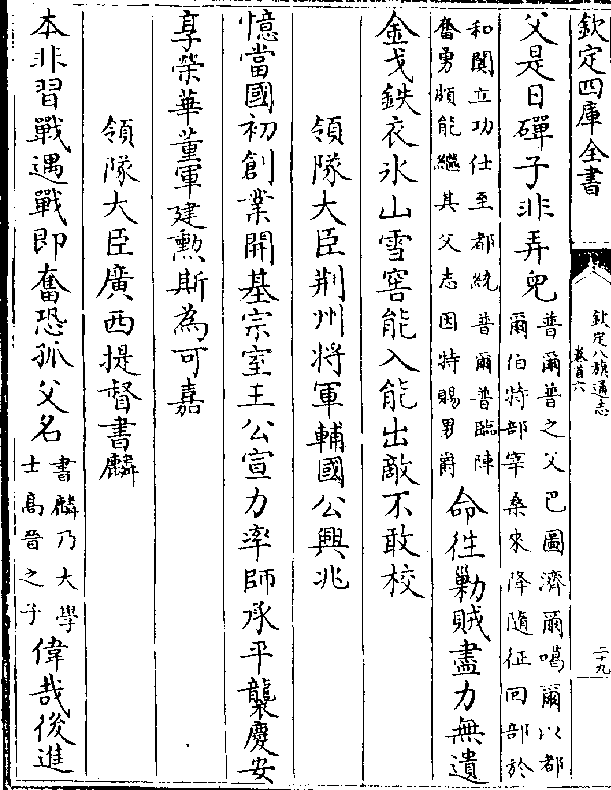 欽定四庫全書
欽定八旗通志
卷首六
二十九
父是日磾子非弄兒
普爾普之父巴圖濟爾噶爾以都
爾伯特部宰桑來降隨征回部於
和闐立功仕至都統普爾普臨陣
奮勇頗能繼其父志因特賜男爵
命往勦賊盡力無遺
金戈鉄衣氷山雪窖能入能出敵不敢校
領隊大臣荆州將軍輔國公興兆
憶當國初創業開基宗室王公宣力率師承平襲慶安
享榮華董軍建勲斯為可嘉
領隊大臣廣西提督書麟
本非習戰遇戰即奮恐孤父名
書麟乃大學
士高晉之子
偉哉後進